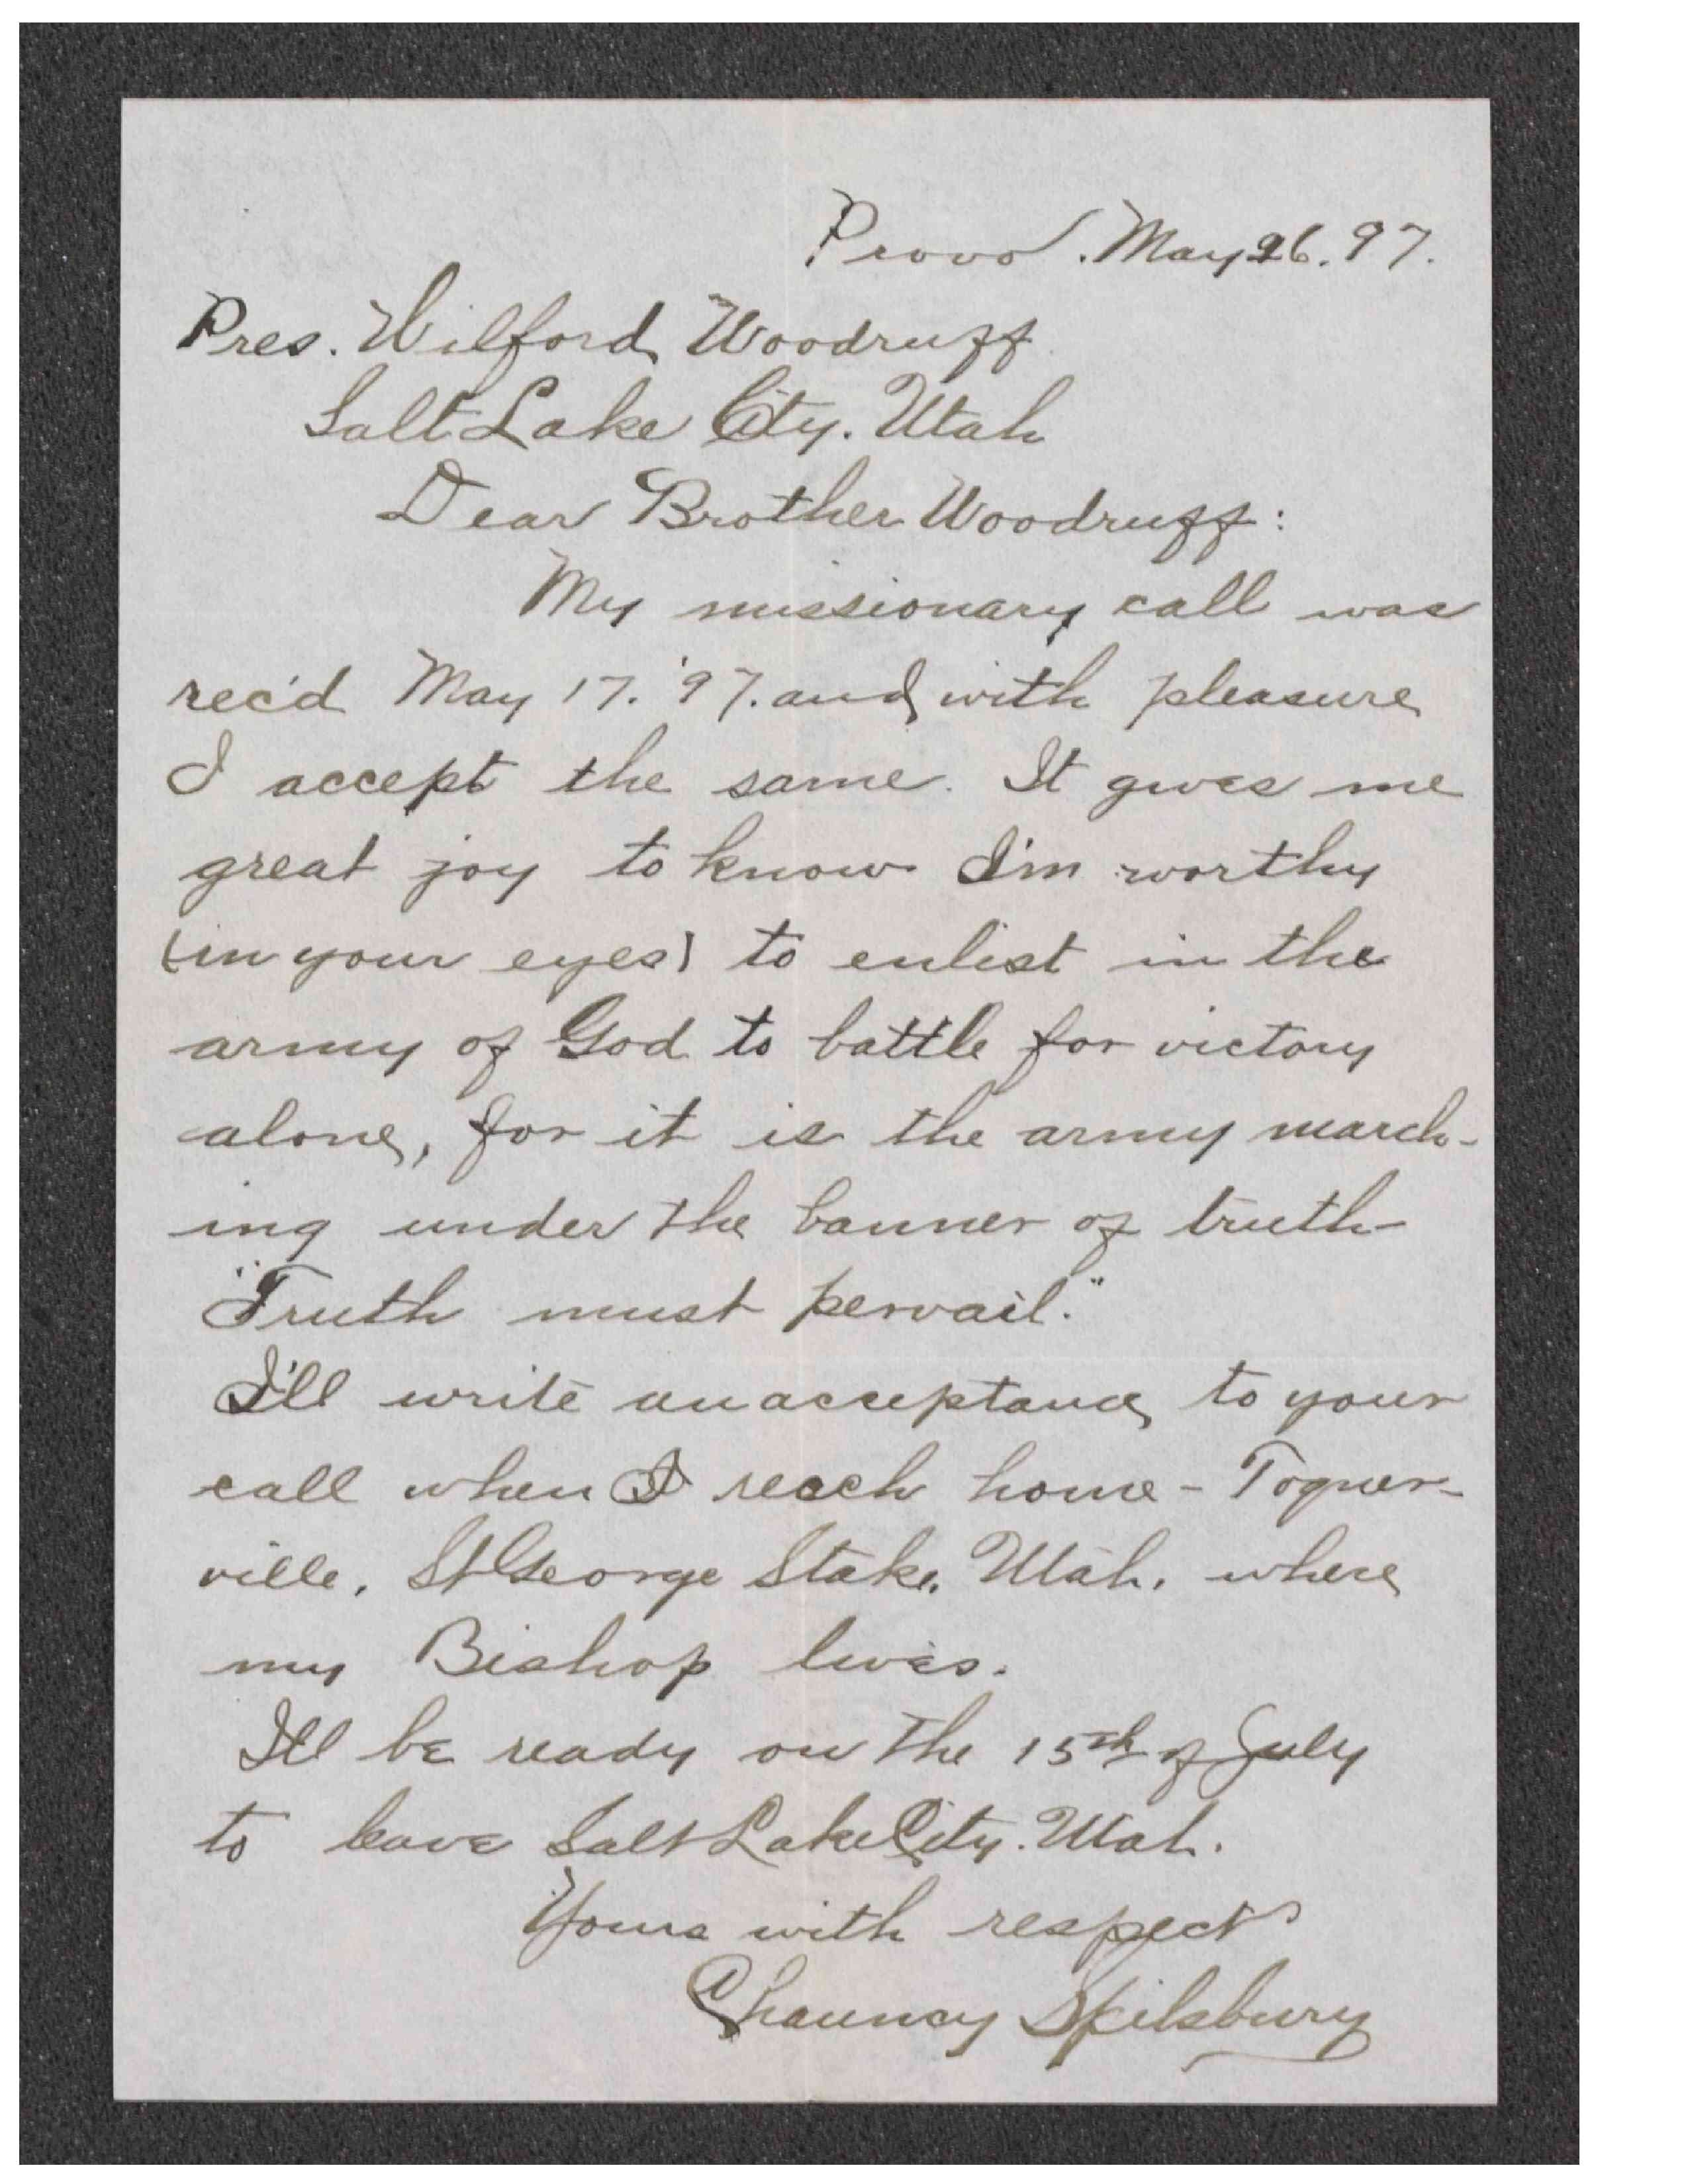 Provo. May 26. 97.
Pres. Wilford Woodruff
Salt Lake City. Utah
Dear Brother Woodruff:
My missionary call was
rec'd May 17. '97. and with pleasure
I accept the same. It gives me
great joy to know I'm worthy
(in your eyes) to enlist in the
army of God to battle for victory
alone, for it is the army march-
ing under the banner of truth-
"Truth must pervail."
I'll write an acceptance to your
call when I reach home - Toquer-
ville, St George Stake, Utah, where
my Bishop lives.
I'll be ready on the 15th of July
to leave Salt Lake City. Utah.
Yours with respect
Chauncy Spilsbury